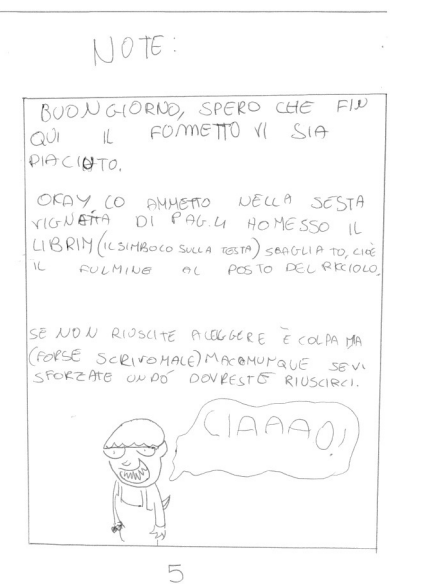 NOTE:
BUONGIORNO, SPERO CHE FIN
QUI IL FOMETTO VI SIA
PIACIUTO.
OKAY, LO AMMETTO NELLA SESTA
VIGNETTA DI PAG.4 HO MESSO IL
LIBRIM (IL SIMBOLO SULLA TESTA) SBAGLIATO, CIOÈ
IL FULMINE AL POSTO DEL RICCIOLO.
SE NON RIUSCITE A LEGGERE È COLPA MA
(FORSE SCRIVO MALE) MA COMUMQUE SE VI
SFORZATE UN PÒ DOVRESTE RIUSCIRCI.
CIAAAO!
5